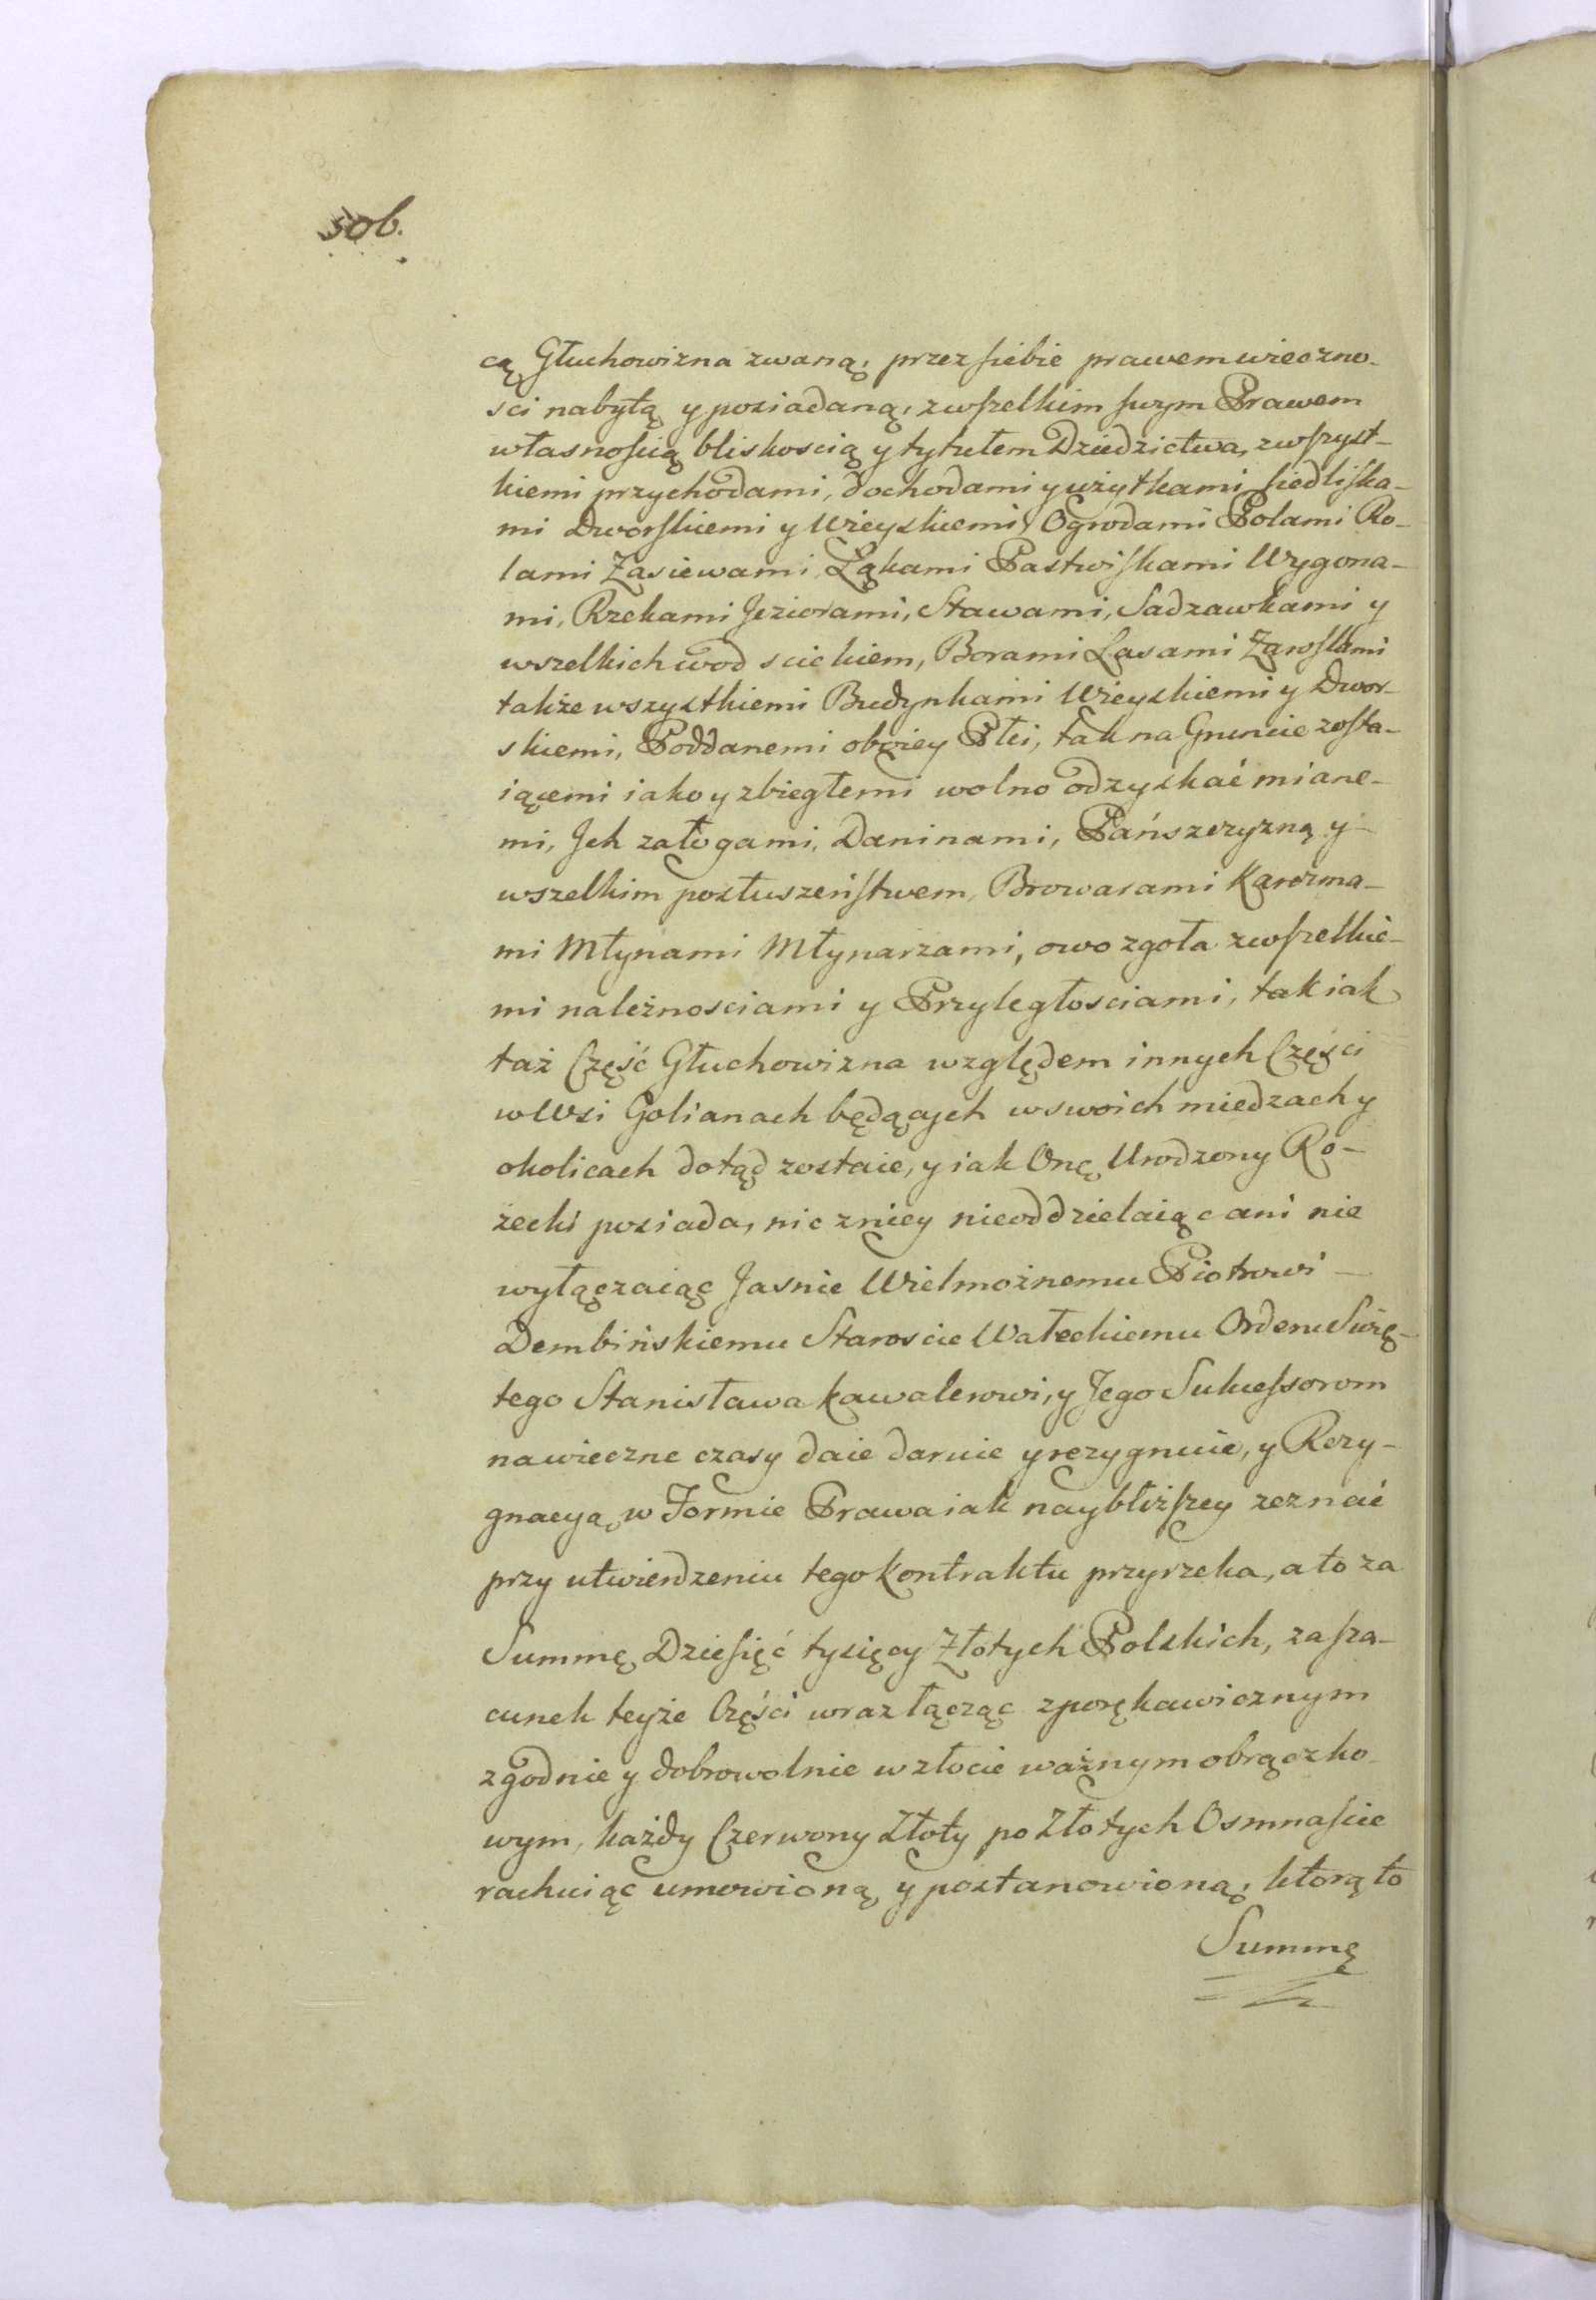 50b.
cą Głuchowizna zwaną, przez siebie prawem wieczno-
sci nabytą y posiadaną, z wszelkim swym Prawem
własnością bliskoscią y tytułem Dziedzictwa, z wszyst-
kiemi przychodami, dochodami y użytkami, siedliska-
mi Dworskiemi y Wieyskiemi, Ogrodami Polami Ro-
lami Zasiewami, Łąkami Pastwiskami Wygona-
mi, Rzekami Jeziorami, Stawami, Sadzawkami y
wszelkich wod sciekiem, Borami Lasami Zaroslami
także wszystkiemi Budynkami Wieyskiemi y Dwor-
skiemi, Poddanemi oboiey Płci, tak na Gruncie zosta-
iącemi iako y zbiegłemi wolno odzyskać miane-
mi, Jch załogami, Daninami, Pańszczyzną y-
wszelkim posłuszeństwem, Browarami Karczma-
mi Młynami Młynarzami, owo zgoła z wszelkie-
mi należnosciami y Przyległosciami, tak iak
taż Część Głuchowizna względem innych Części
w Wsi Golianach będących w swoich miedzach y
okolicach dotąd zostaie, y iak Onę Urodzony Ro-
żecki posiada, nic z niey nieoddzielaiąc ani nie
wyłączaiąc Jasnie Wielmożnemu Piotrowi -
Dembińskiemu Staroscie Wałeckiemu Orderu Swię-
tego Stanisława Kawalerowi, y Jego Sukcessorom
na wieczne czasy daie daruie y rezygnuie, y Rezy-
gnacyą w Formie Prawa iak naybliższey zeznać
przy utwierdzeniu tego Kontraktu przyrzeka, a to za
Summę Dziesięć tysięcy Złotych Polskich, za sza-
cunek teyże Części wraz łącząc z porękawicznym
zgodnie y dobrowolnie w złocie ważnym obrączko-
wym, każdy Czerwony Złoty po Złotych Osmnaście
rachuiąc umowioną y postanowioną, którą to
Summę